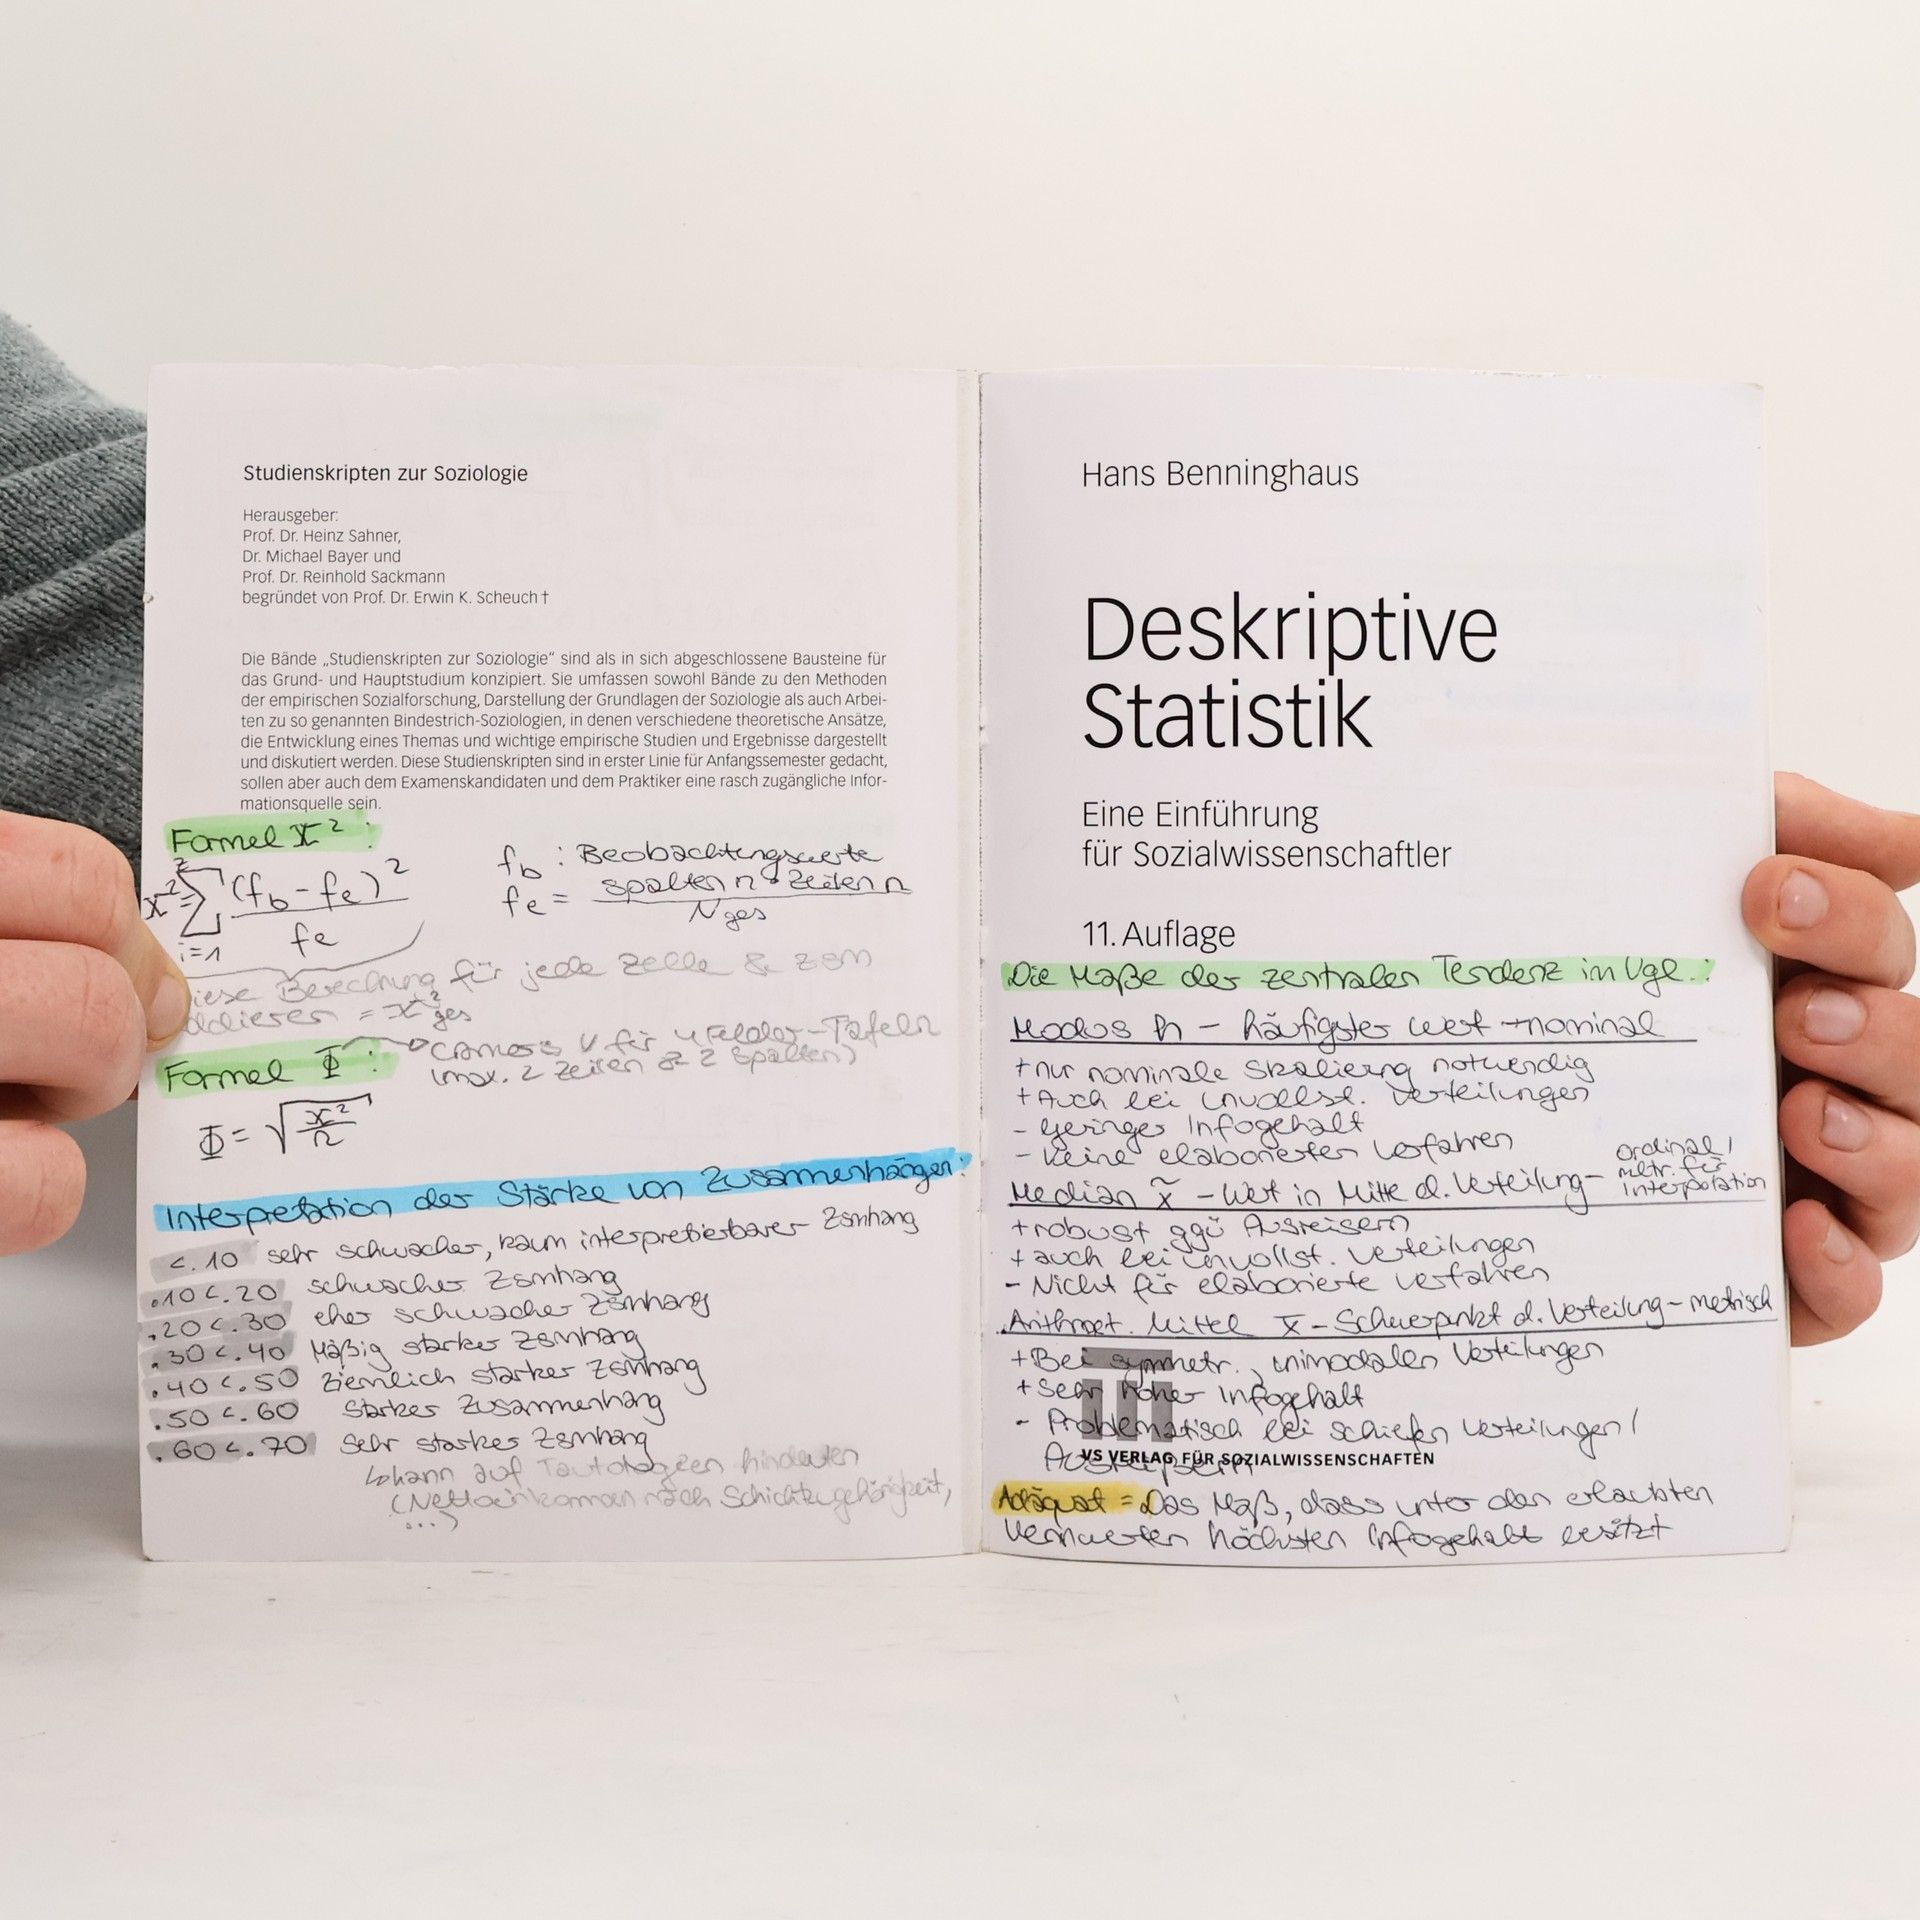 Studienskripten zur Soziologie
Herausgeber:
Prof. Dr. Heinz Sahner,
Dr. Michael Bayer und
Prof. Dr. Reinhold Sackmann
begründet von Prof. Dr. Erwin K. Scheuch †
Die Bände „Studienskripten zur Soziologie“ sind als in sich abgeschlossene Bausteine für
das Grund- und Hauptstudium konzipiert. Sie umfassen sowohl Bände zu den Methoden
der empirischen Sozialforschung, Darstellung der Grundlagen der Soziologie als auch Arbei-
ten zu so genannten Bindestrich-Soziologien, in denen verschiedene theoretische Ansätze,
die Entwicklung eines Themas und wichtige empirische Studien und Ergebnisse dargestellt
und diskutiert werden. Diese Studienskripten sind in erster Linie für Anfangssemester gedacht,
sollen aber auch dem Examenskandidaten und dem Praktiker eine rasch zugängliche Infor-
mationsquelle sein.
Formel X² :
x² = z ∑ i=1 (fb - fe)² / fe
fb : Beobachtungswerte
fe = Spalten n · Zeilen n / N ges
iese Berechnung für jede Zelle & zsm
ddieren = x² ges
Formel Φ : → Cramers V für 4 Felder-Tafeln
(max. 2 Zeilen & 2 Spalten)
Φ = √ x² / n
Interpretation der Stärke von Zusammenhängen:
<.10 sehr schwacher, kaum interpretierbarer Zsmhang
.10<.20 schwacher Zsmhang
.20<.30 eher schwacher Zsmhang
.30<.40 Mäßig starker Zsmhang
.40<.50 Ziemlich starker Zsmhang
.50<.60 starker Zusammenhang
.60<.70 Sehr starker Zsmhang
↳ kann auf Tautologien hindeuten
(Nettoeinkommen nach Schichtzugehörigkeit,
...)
Hans Benninghaus
Deskriptive
Statistik
Eine Einführung
für Sozialwissenschaftler
11. Auflage
Die Maße der zentralen Tendenz im Vgl.:
Modus h - häufigster Wert → nominal
+ nur nominale Skalierung notwendig
+ Auch bei unvollst. Verteilungen
- geringer Infogehalt
- keine elaborierten Verfahren
Median x̃ - Wert in Mitte d. Verteilung - ordinal / metr. für Interpolation
+ robust ggü Ausreisern
+ auch bei unvollst. Verteilungen
- Nicht für elaborierte Verfahren
Arithmet. Mittel x̄ - Schwerpunkt d. Verteilung - metrisch
+ Bei symmetr., unimodalen Verteilungen
+ Sehr hoher Infogehalt
- Problematisch bei schiefen Verteilungen /
Ausreißern
VS VERLAG FÜR SOZIALWISSENSCHAFTEN
Adäquat = Das Maß, dass unter den erlaubten
Kennwerten höchsten Infogehalt besitzt